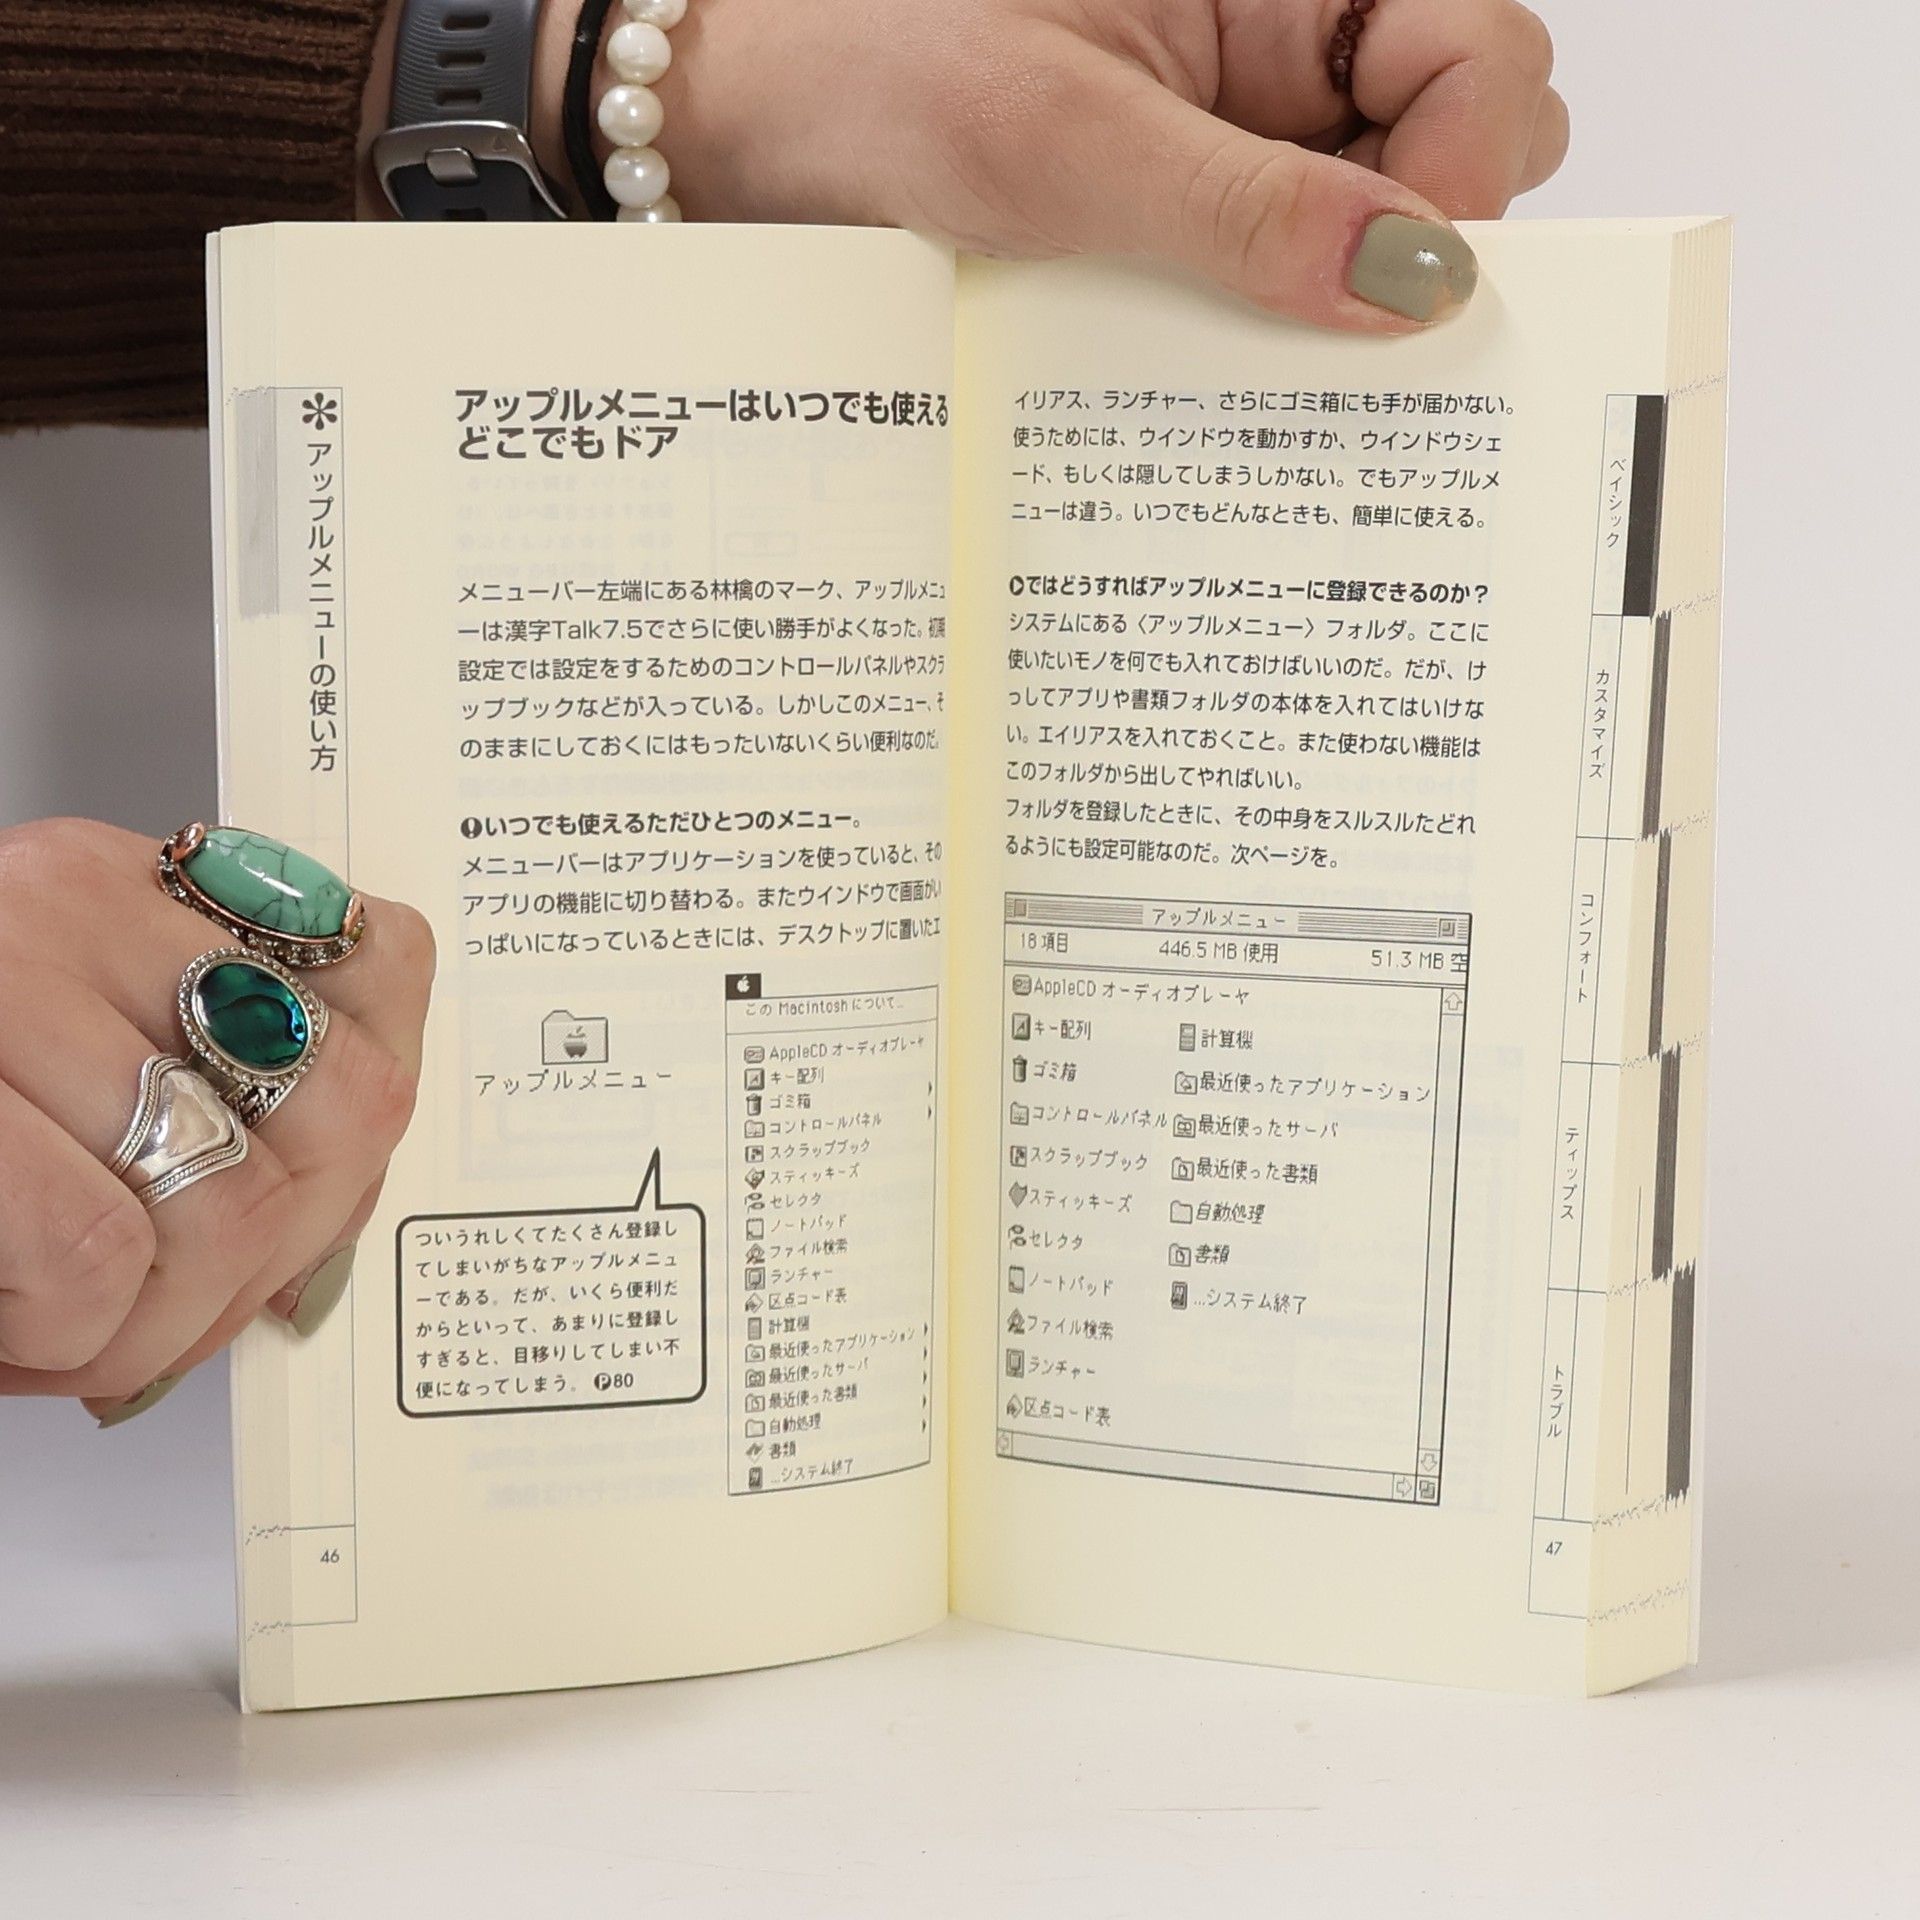 アップルメニューの使い方
アップルメニューはいつでも使える
どこでもドア
メニューバー左端にある林檎のマーク、アップルメニュ
ーは漢字Talk7.5でさらに使い勝手がよくなった。初期
設定では設定をするためのコントロールパネルやスクラ
ップブックなどが入っている。しかしこのメニュー、そ
のままにしておくにはもったいないくらい便利なのだ。
いつでも使えるただひとつのメニュー。
メニューバーはアプリケーションを使っていると、その
アプリの機能に切り替わる。またウインドウで画面がい
っぱいになっているときには、デスクトップに置いたエ
アップルメニュー
ついうれしくてたくさん登録し
てしまいがちなアップルメニュ
ーである。だが、いくら便利だ
からといって、あまりに登録し
すぎると、目移りしてしまい不
便になってしまう。 P80
この Macintosh について...
AppleCD オーディオプレーヤ
キー配列
ゴミ箱
コントロールパネル
スクラップブック
スティッキーズ
セレクタ
ノートパッド
ファイル検索
ランチャー
区点コード表
計算機
最近使ったアプリケーション
最近使ったサーバ
最近使った書類
自動処理
書類
...システム終了
46
イリアス、ランチャー、さらにゴミ箱にも手が届かない。
使うためには、ウインドウを動かすか、ウインドウシェ
ード、もしくは隠してしまうしかない。でもアップルメ
ニューは違う。いつでもどんなときも、簡単に使える。
ではどうすればアップルメニューに登録できるのか？
システムにある〈アップルメニュー〉フォルダ。ここに
使いたいモノを何でも入れておけばいいのだ。だが、け
っしてアプリや書類フォルダの本体を入れてはいけな
い。エイリアスを入れておくこと。また使わない機能は
このフォルダから出してやればいい。
フォルダを登録したときに、その中身をスルスルたどれ
るようにも設定可能なのだ。次ページを。
アップルメニュー
18 項目 446.5 MB 使用 51.3 MB 空
AppleCD オーディオプレーヤ
キー配列
ゴミ箱
コントロールパネル
スクラップブック
スティッキーズ
セレクタ
ノートパッド
ファイル検索
ランチャー
区点コード表
計算機
最近使ったアプリケーション
最近使ったサーバ
最近使った書類
自動処理
書類
...システム終了
ベイシック
カスタマイズ
コンフォート
ティップス
トラブル
47